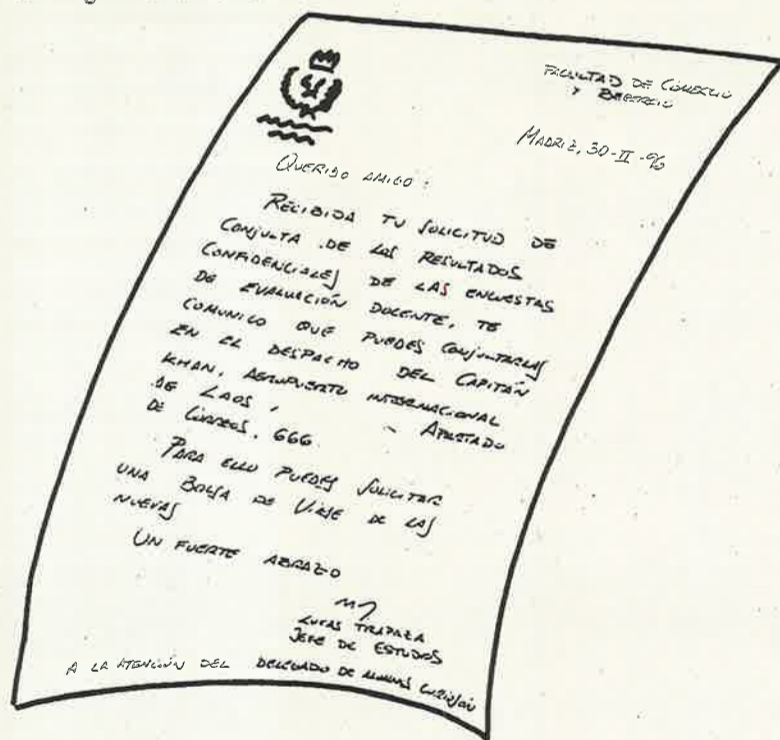 FACULTAD DE COMERCIO
Y BEBERCIO
MADRIZ, 30-II-96
QUERIDO AMIGO:
RECIBIDA TU SOLICITUD DE
CONSULTA DE LOS RESULTADOS
CONFIDENCIALES DE LAS ENCUESTAS
DE EVALUACIÓN DOCENTE, TE
COMUNICO QUE PUEDES CONSULTARLAS
EN EL DESPACHO DEL CAPITÁN
KHAN, AEROPUERTO INTERNACIONAL
DE LAOS, - APARTADO
DE CORREOS, 666.
PARA ELLO PUEDES SOLICITAR
UNA BOLSA DE VIAJE DE LAS
NUEVAS
UN FUERTE ABRAZO
LUCAS TRAPAZA
JEFE DE ESTUDIOS
A LA ATENCIÓN DEL DELEGADO DE ALUMNOS CURIOSÓN